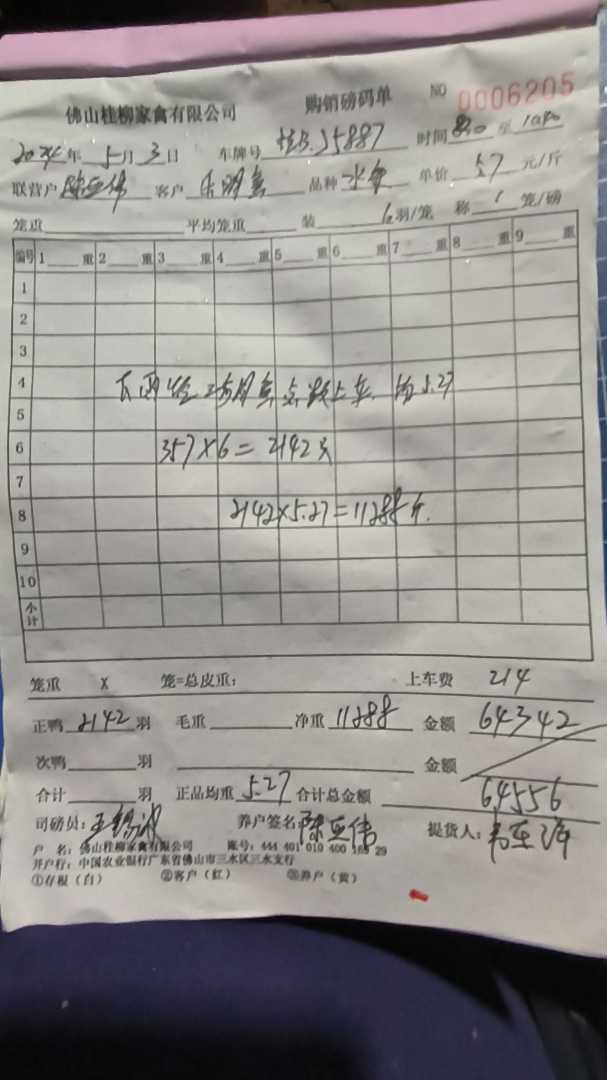 佛山桂柳家禽有限公司 购销磅码单 NO 0006205
2024年 5月 3日 车牌号 桂B.J5887 时间 至
联营户 陈亚伟 客户 品种 水鱼 单价 5.7 元/斤
笼重 平均笼重 装 6 羽/笼 称 1 笼/磅
编号 1 重 2 重 3 重 4 重 5 重 6 重 7 重 8 重 9 重
1
2
3
4
点数上车 均5.27
5
6 357×6=2142只
7
8 2142×5.27=11288斤.
9
10
小计
笼重 X 笼=总皮重: 上车费 214
正鸭 2142 羽 毛重 净重 11288 金额 64342
次鸭 羽 金额
合计 羽 正品均重 5.27 合计总金额 64556
司磅员: 养户签名: 陈亚伟 提货人:
户 名: 佛山桂柳家禽有限公司 账号: 444 401 010 400 29
开户行: 中国农业银行广东省佛山市三水区三水支行
①存根（白） ②客户（红） ③养户（黄）